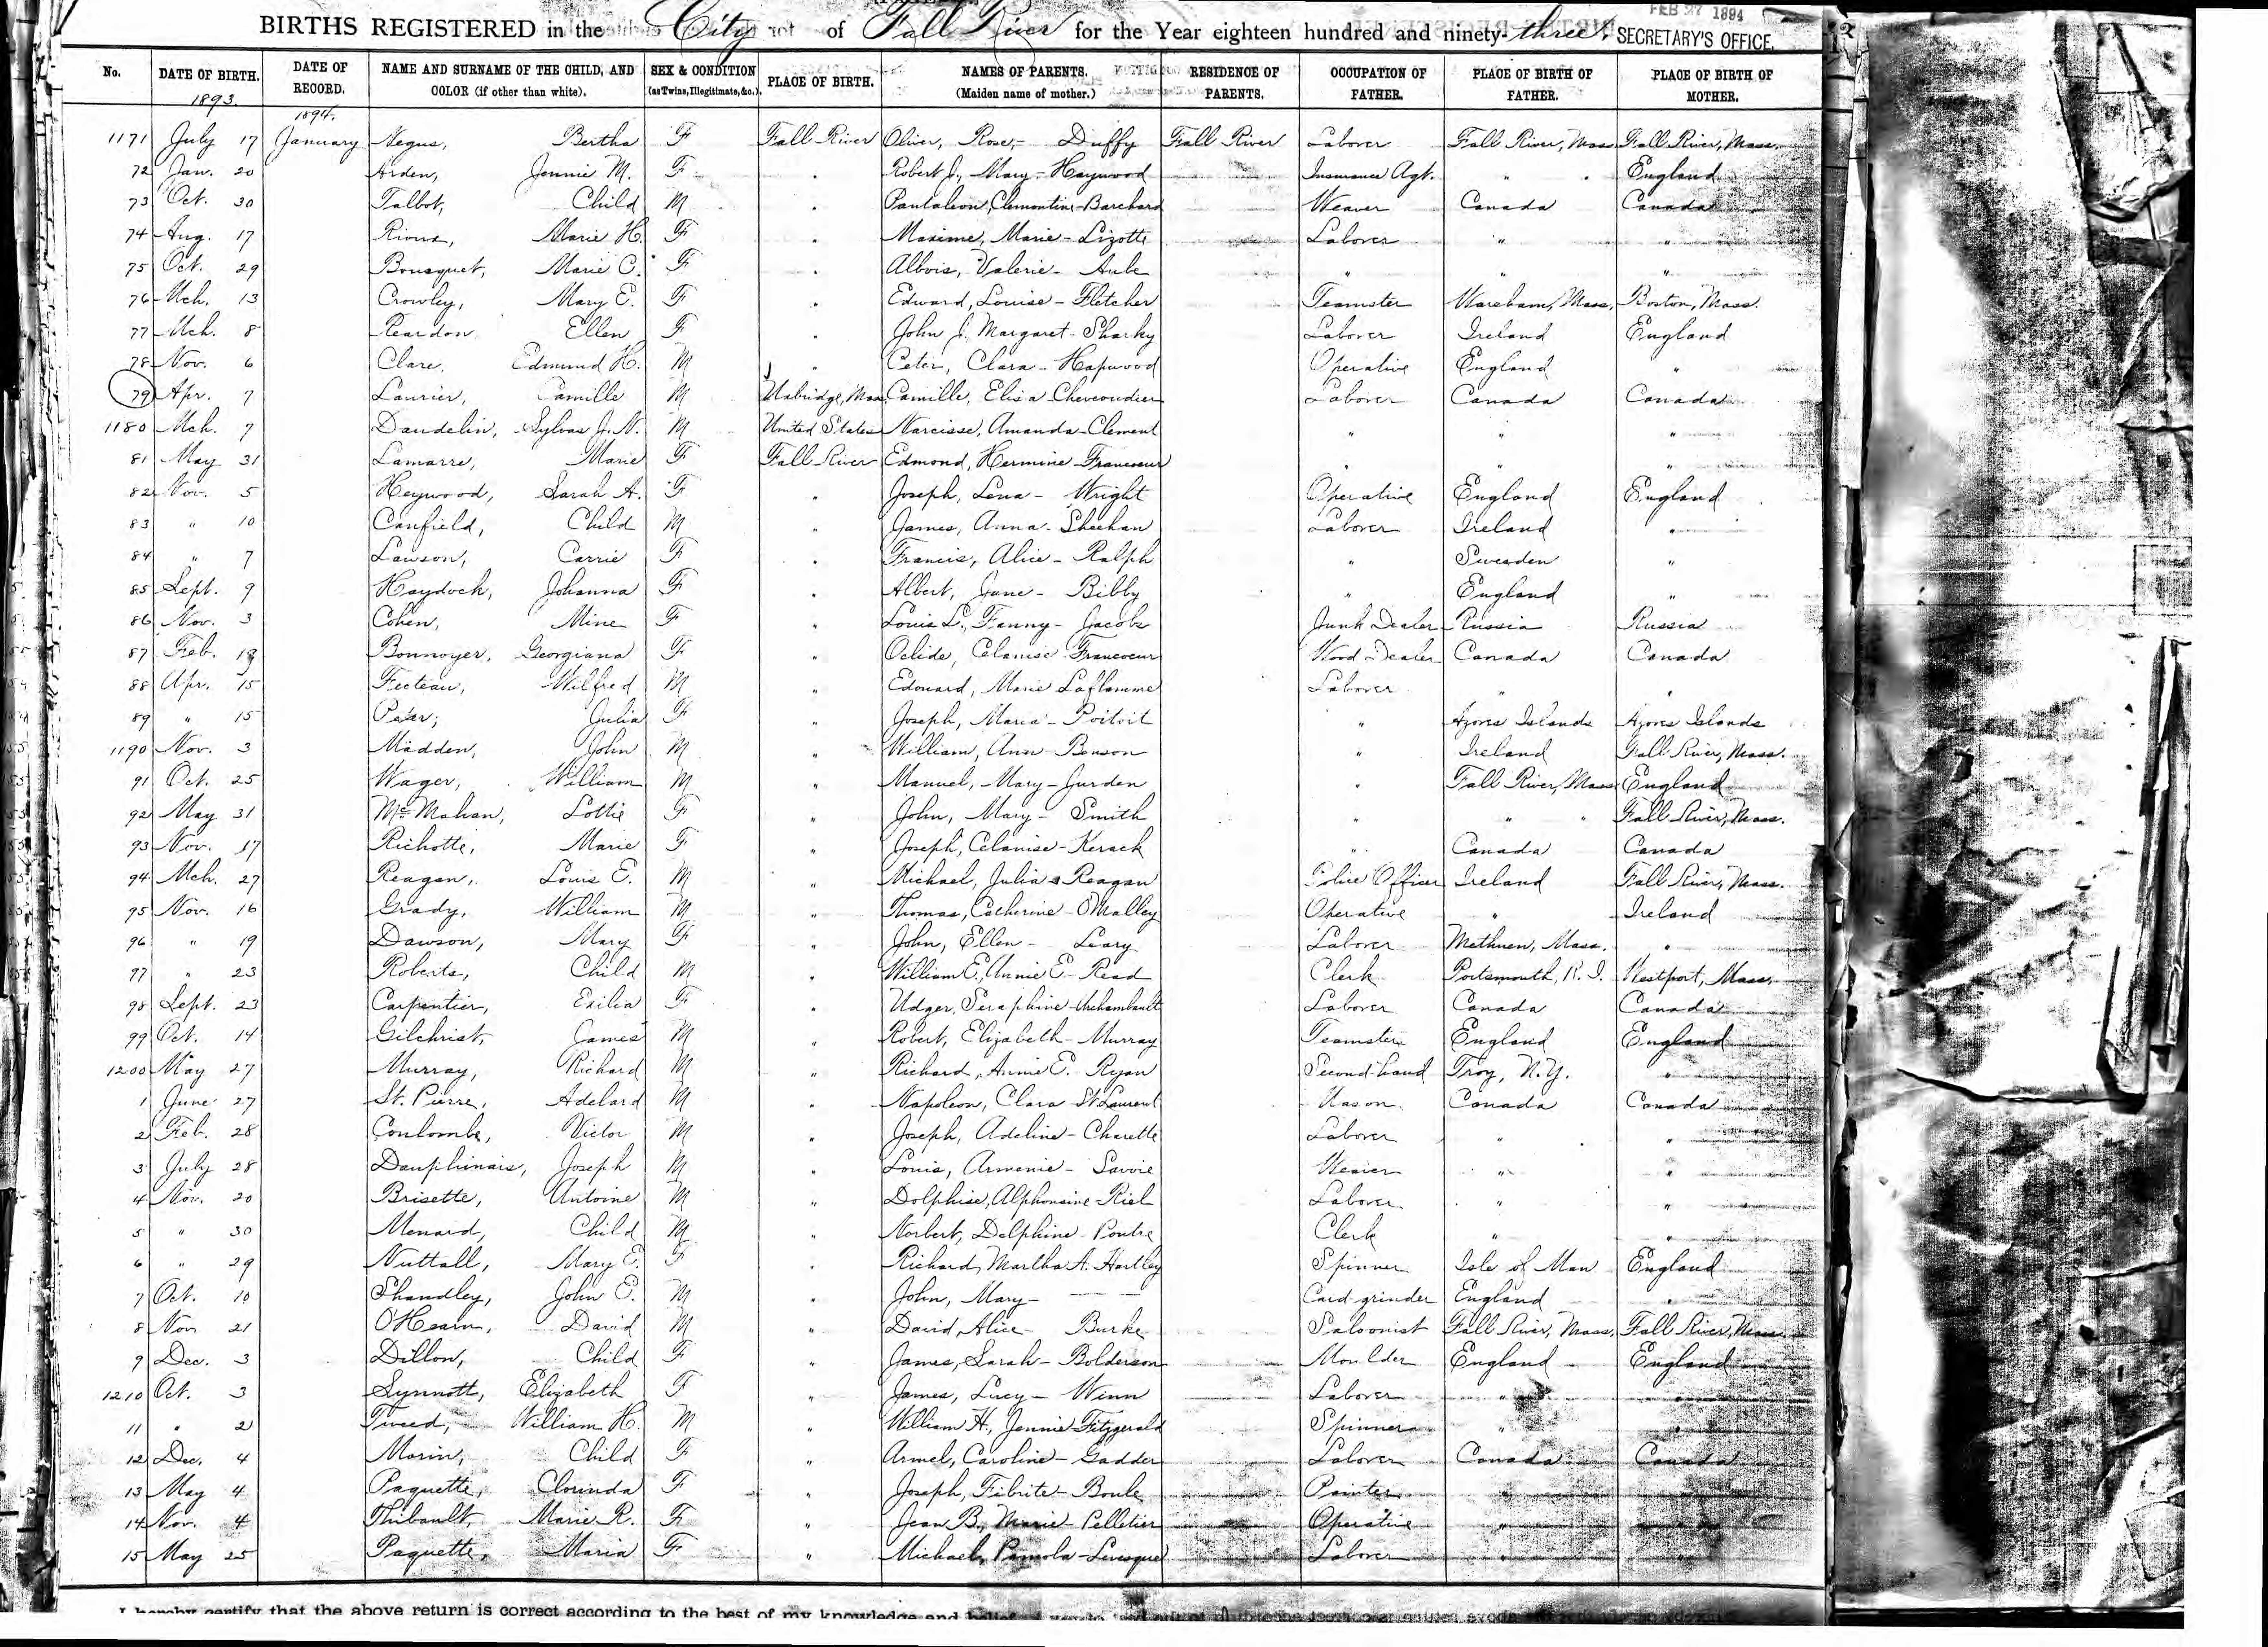 FEB 27 1894
BIRTHS REGISTERED in the City of Fall River for the Year eighteen hundred and ninety-three. SECRETARY'S OFFICE.
No. DATE OF BIRTH. DATE OF RECORD. NAME AND SURNAME OF THE CHILD, AND COLOR (if other than white). SEX & CONDITION (as Twins, Illegitimate, &c.) PLACE OF BIRTH. NAMES OF PARENTS. (Maiden name of mother.) RESIDENCE OF PARENTS. OCCUPATION OF FATHER. PLACE OF BIRTH OF FATHER. PLACE OF BIRTH OF MOTHER.
1893. 1894.
1171 July 17 January Negus, Bertha F Fall River Oliver, Rose, - Duffy Fall River Laborer Fall River, Mass. Fall River, Mass.
72 Jan. 20 Arden, Jennie M. F " Robert J., Mary - Haywood Insurance Agt. " " England
73 Oct. 30 Talbot, Child M " Pantaleon, Clementine - Barchard Weaver Canada Canada
74 Aug. 17 Rioux, Marie H. F " Maxime, Marie - Lizotte Laborer " "
75 Oct. 29 Bousquet, Marie C. F " Albois, Valerie - Aube " " "
76 Mch. 13 Crowley, Mary E. F " Edward, Louise - Fletcher Teamster Wareham, Mass. Boston, Mass.
77 Mch. 8 Reardon Ellen F " John J. Margaret - Sharky Laborer Ireland England
78 Nov. 6 Clare, Edmund H. M " Peter, Clara - Hapwood Operative England "
79 Apr. 7 Laurier, Camille M Uxbridge, Mass. Camille, Elisa - Chevoudier Laborer Canada Canada
1180 Mch. 7 Daudelin, Sylvas J. N. M United States Narcisse, Amanda - Clement " " "
81 May 31 Lamarre, Marie F Fall River Edmond, Hermine - Francoeur " " "
82 Nov. 5 Heywood, Sarah A. F " Joseph, Lena - Wright Operative England England
83 " 10 Canfield, Child M " James, Anna - Sheehan Laborer Ireland "
84 " 7 Lawson, Carrie F " Francis, Alice - Ralph " Sweaden "
85 Sept. 9 Haydock, Johanna F " Albert, Jane - Bibby " England "
86 Nov. 3 Cohen, Mine F " Louis L., Fanny - Jacobs Junk Dealer Russia Russia
87 Feb. Bonnoyer, Georgiana F " Oclide, Celanise - Francoeur Wood Dealer Canada Canada
88 Apr. 15 Fecteau, Wilfred M " Edouard, Marie Laflamme Laborer " "
89 " 15 Peter, Julia F " Joseph, Maria - Poitoit " Azores Islands Azores Islands
1190 Nov. 3 Madden, John M " William, Ann - Benson " Ireland Fall River, Mass.
91 Oct. 25 Wager, William M " Manuel, - Mary - Jurden " Fall River, Mass England
92 May 31 McMahan, Lottie F " John, Mary - Smith " " " Fall River, Mass.
93 Nov. 17 Richotte, Marie F " Joseph, Celanise - Kerack " Canada Canada
94 Mch. 27 Reagan, Louis E. M " Michael, Julia - Reagan Police Officer Ireland Fall River, Mass.
95 Nov. 16 Grady, William M " Thomas, Catherine - O'Malley Operative " Ireland
96 " 19 Dawson, Mary F " John, Ellen - Leary Laborer Methuen, Mass. "
97 " 23 Roberts, Child M " William E., Annie E. - Read Clerk Portsmouth, R. I. Westport, Mass.
98 Sept. 23 Carpentier, Exilia F " Udger, Seraphine - Archambault Laborer Canada Canada
99 Oct. 14 Gilchrist, James M " Robert, Elizabeth - Murray Teamster England England
1200 May 27 Murray, Richard M " Richard, Annie E. - Ryan Second hand Troy, N.Y. "
1 June 27 St. Pierre, Adelard M " Napoleon, Clara St Laurent Mason Canada Canada
2 Feb. 28 Coulombe, Victor M " Joseph, Adeline - Charette Laborer " "
3 July 28 Dauphinais, Joseph M " Louis, Armenie - Savoie Weaver " "
4 Nov. 20 Brisette, Antoine M " Dolphise, Alphonsine - Riel Laborer " "
5 " 30 Menard, Child M " Norbert, Delphine - Poutre Clerk " "
6 " 29 Nuttall, Mary E. F " Richard, Martha A. Hartley Spinner Isle of Man England
7 Oct. 10 Shandley, John E. M " John, Mary - Card grinder England "
8 Nov 21 O'Hearn, David M " David, Alice - Burke Saloonist Fall River, Mass. Fall River, Mass.
9 Dec. 3 Dillon, Child F " James, Sarah - Bolderson Moulder England England
1210 Oct. 3 Synnott, Elizabeth F " James, Lucy - Winn Laborer " "
11 " 2 Tweed, William H. M " William H., Jennie Fitzgerald Spinner " "
12 Dec. 4 Morin, Child F " Armel, Caroline - Gadder Laborer Canada Canada
13 May 4 Paquette, Clorinda F " Joseph, Fibrite - Boule Painter " "
14 Nov. 4 Thibault, Marie R. F " Jean B., Marie - Pelletier Operative " "
15 May 25 Paquette, Maria F " Michael, Pamola - Levesque Laborer " "
I hereby certify that the above return is correct according to the best of my knowledge and belief